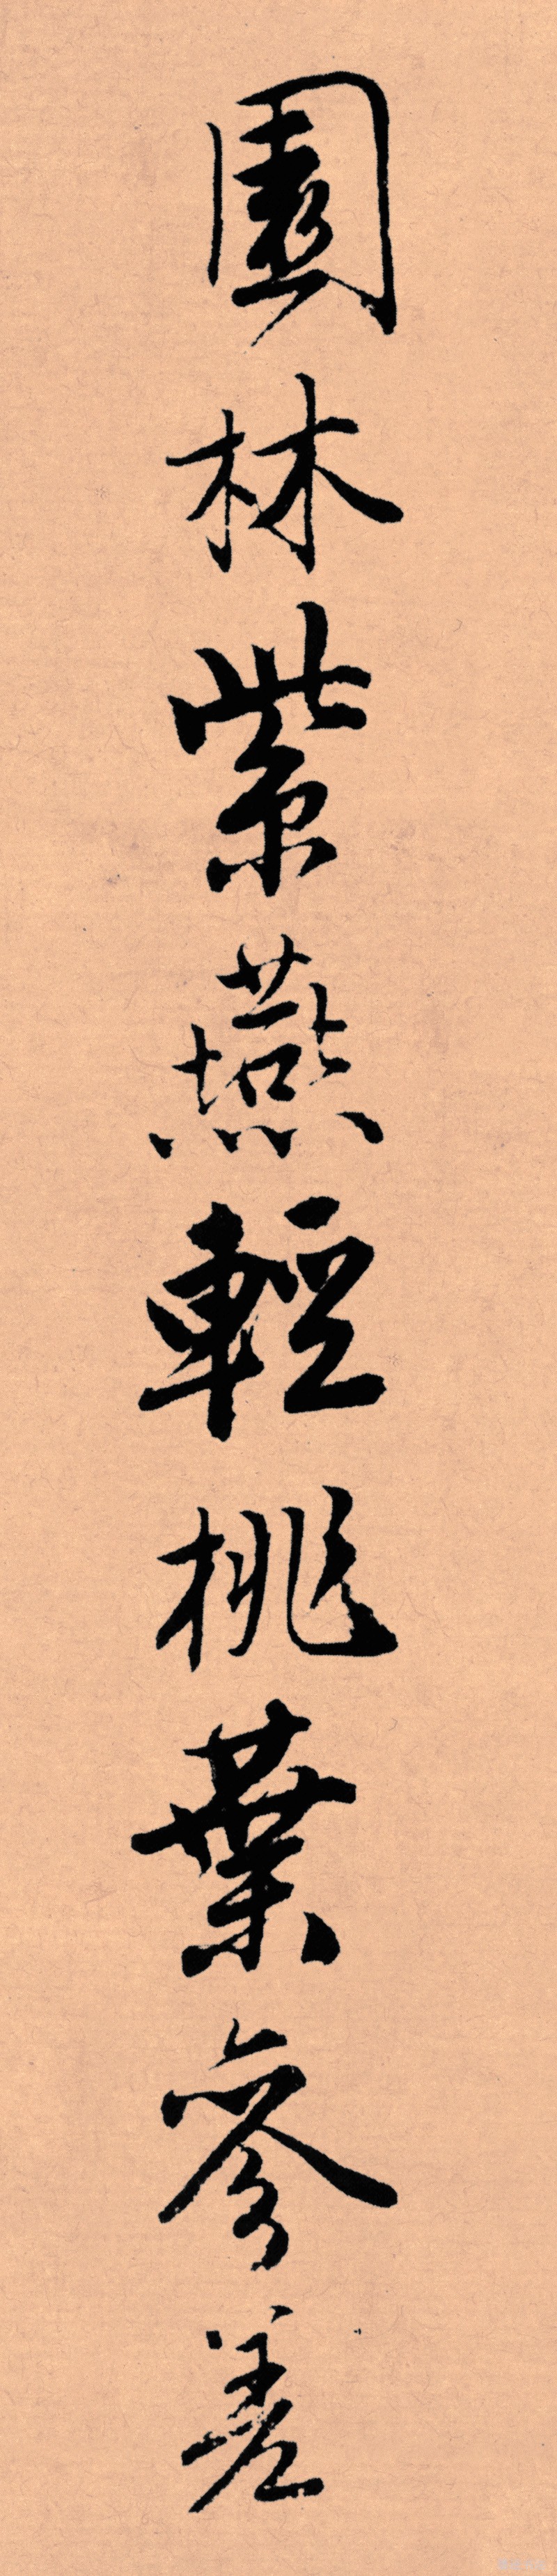 園林紫燕輕桃葉參差